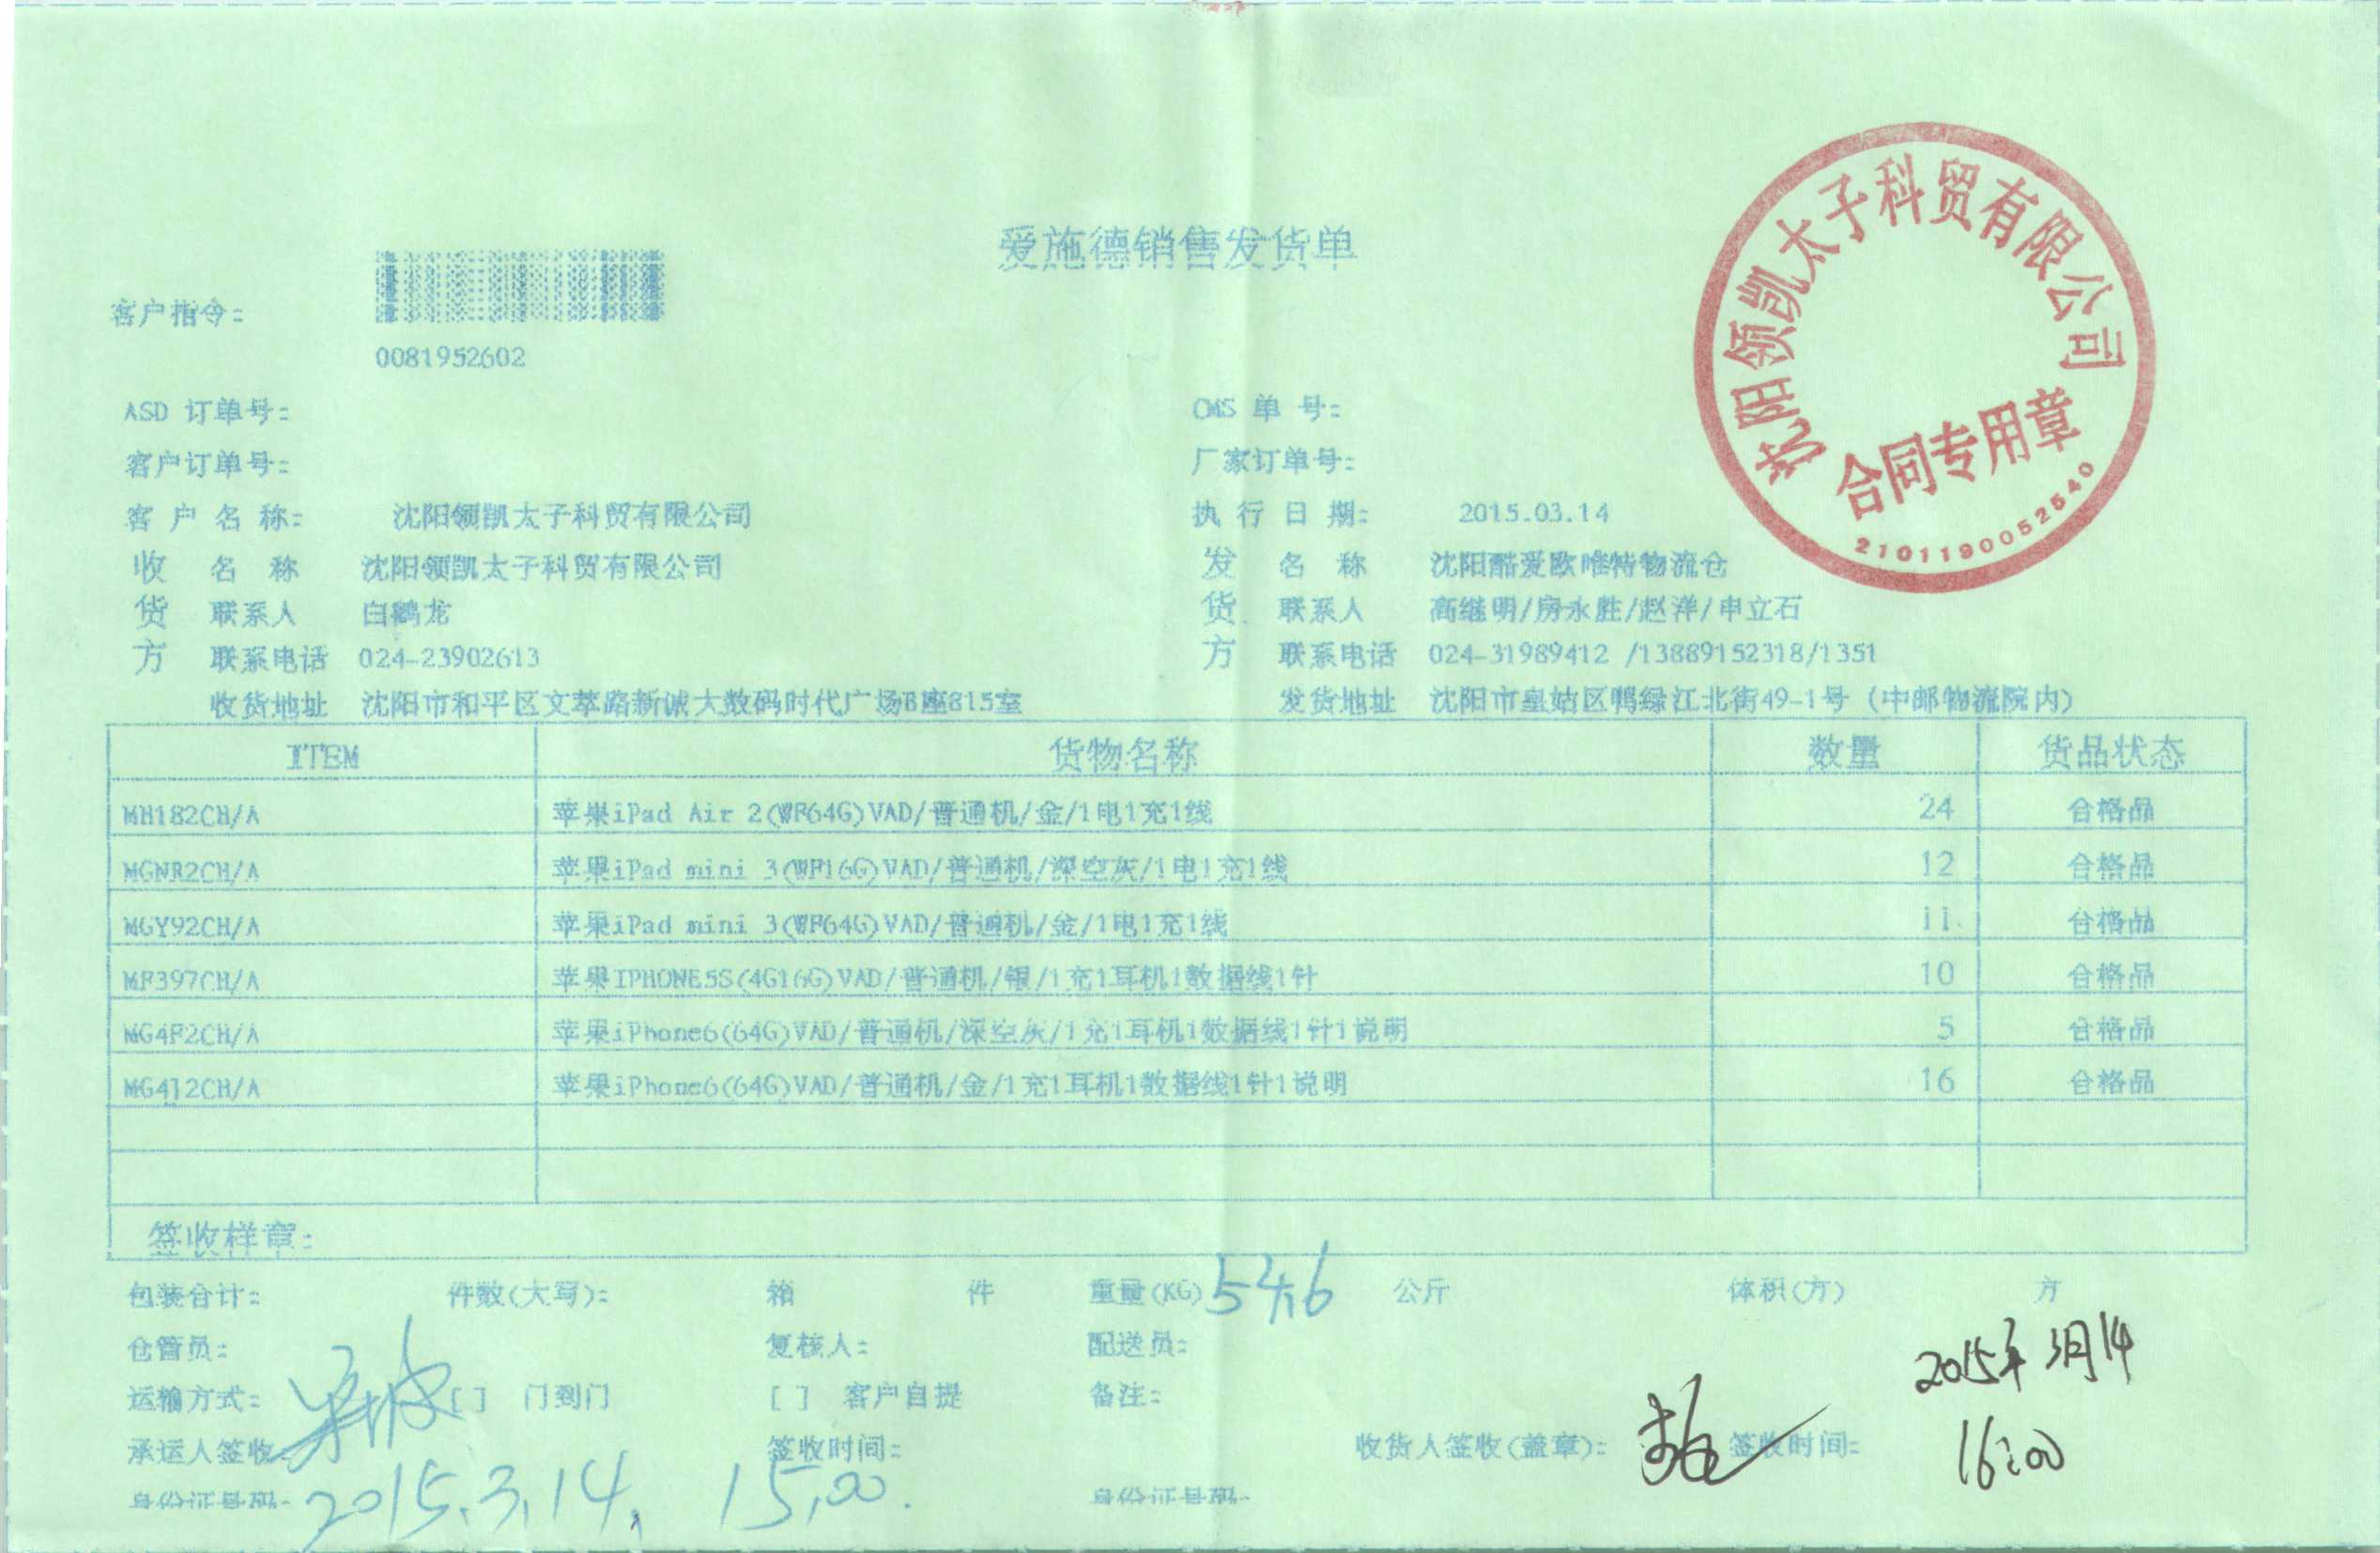 爱施德销售发货单
沈阳领凯太子科贸有限公司
合同专用章
2101190052540
客户指令:
0081952602
ASD 订单号: OMS 单 号:
客户订单号: 厂家订单号:
客 户 名 称: 沈阳领凯太子科贸有限公司 执 行 日 期: 2015.03.14
收 名 称 沈阳领凯太子科贸有限公司 发 名 称 沈阳酷爱欧唯特物流仓
货 联系人 白鹤龙 货 联系人 高继明/房永胜/赵洋/申立石
方 联系电话 024-23902613 方 联系电话 024-31989412 /13889152318/1351
收货地址 沈阳市和平区文萃路新诚大数码时代广场B座815室 发货地址 沈阳市皇姑区鸭绿江北街49-1号 (中邮物流院内)
ITEM 货物名称 数量 货品状态
MH182CH/A 苹果iPad Air 2(WF64G)VAD/普通机/金/1电1充1线 24 合格品
MGNR2CH/A 苹果iPad mini 3(WF16G)VAD/普通机/深空灰/1电1充1线 12 合格品
MGY92CH/A 苹果iPad mini 3(WF64G)VAD/普通机/金/1电1充1线 11 合格品
MF397CH/A 苹果IPHONE5S(4G16G)VAD/普通机/银/1充1耳机1数据线1针 10 合格品
MG4F2CH/A 苹果iPhone6(64G)VAD/普通机/深空灰/1充1耳机1数据线1针1说明 5 合格品
MG4J2CH/A 苹果iPhone6(64G)VAD/普通机/金/1充1耳机1数据线1针1说明 16 合格品
签收样章:
包装合计: 件数(大写): 箱 件 重量(KG) 54.6 公斤 体积(方) 方
仓管员: 复核人: 配送员: 2015年3月14
运输方式: [ ] 门到门 [ ] 客户自提 备注:
承运人签收 签收时间: 收货人签收(盖章): 签收时间: 16:00
身份证号码: 2015.3.14. 15:00. 身份证号码: